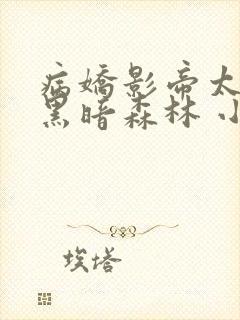 病嬌影帝太
黑暗森林 小
埃塔